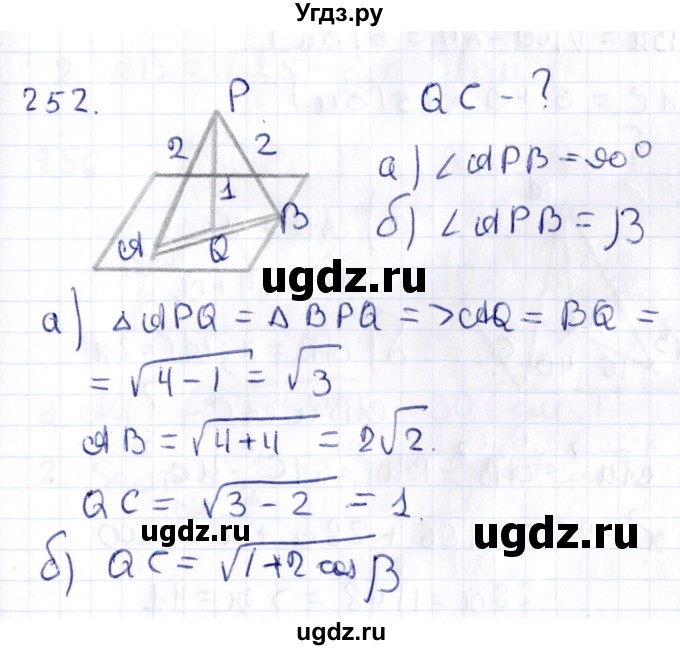 Угдз.ру
252.
P
QC - ?
2
2
1
а) ∠APB = 90°
б) ∠APB = β
A
Q
B
ugdz.ru
ugdz.ru
а) △APQ = △BPQ => AQ = BQ =
= √4-1 = √3
AB = √4+4 = 2√2.
QC = √3-2 = 1.
ugdz.ru
ugdz.ru
б) QC = √1+2 cos β
ugdz.ru